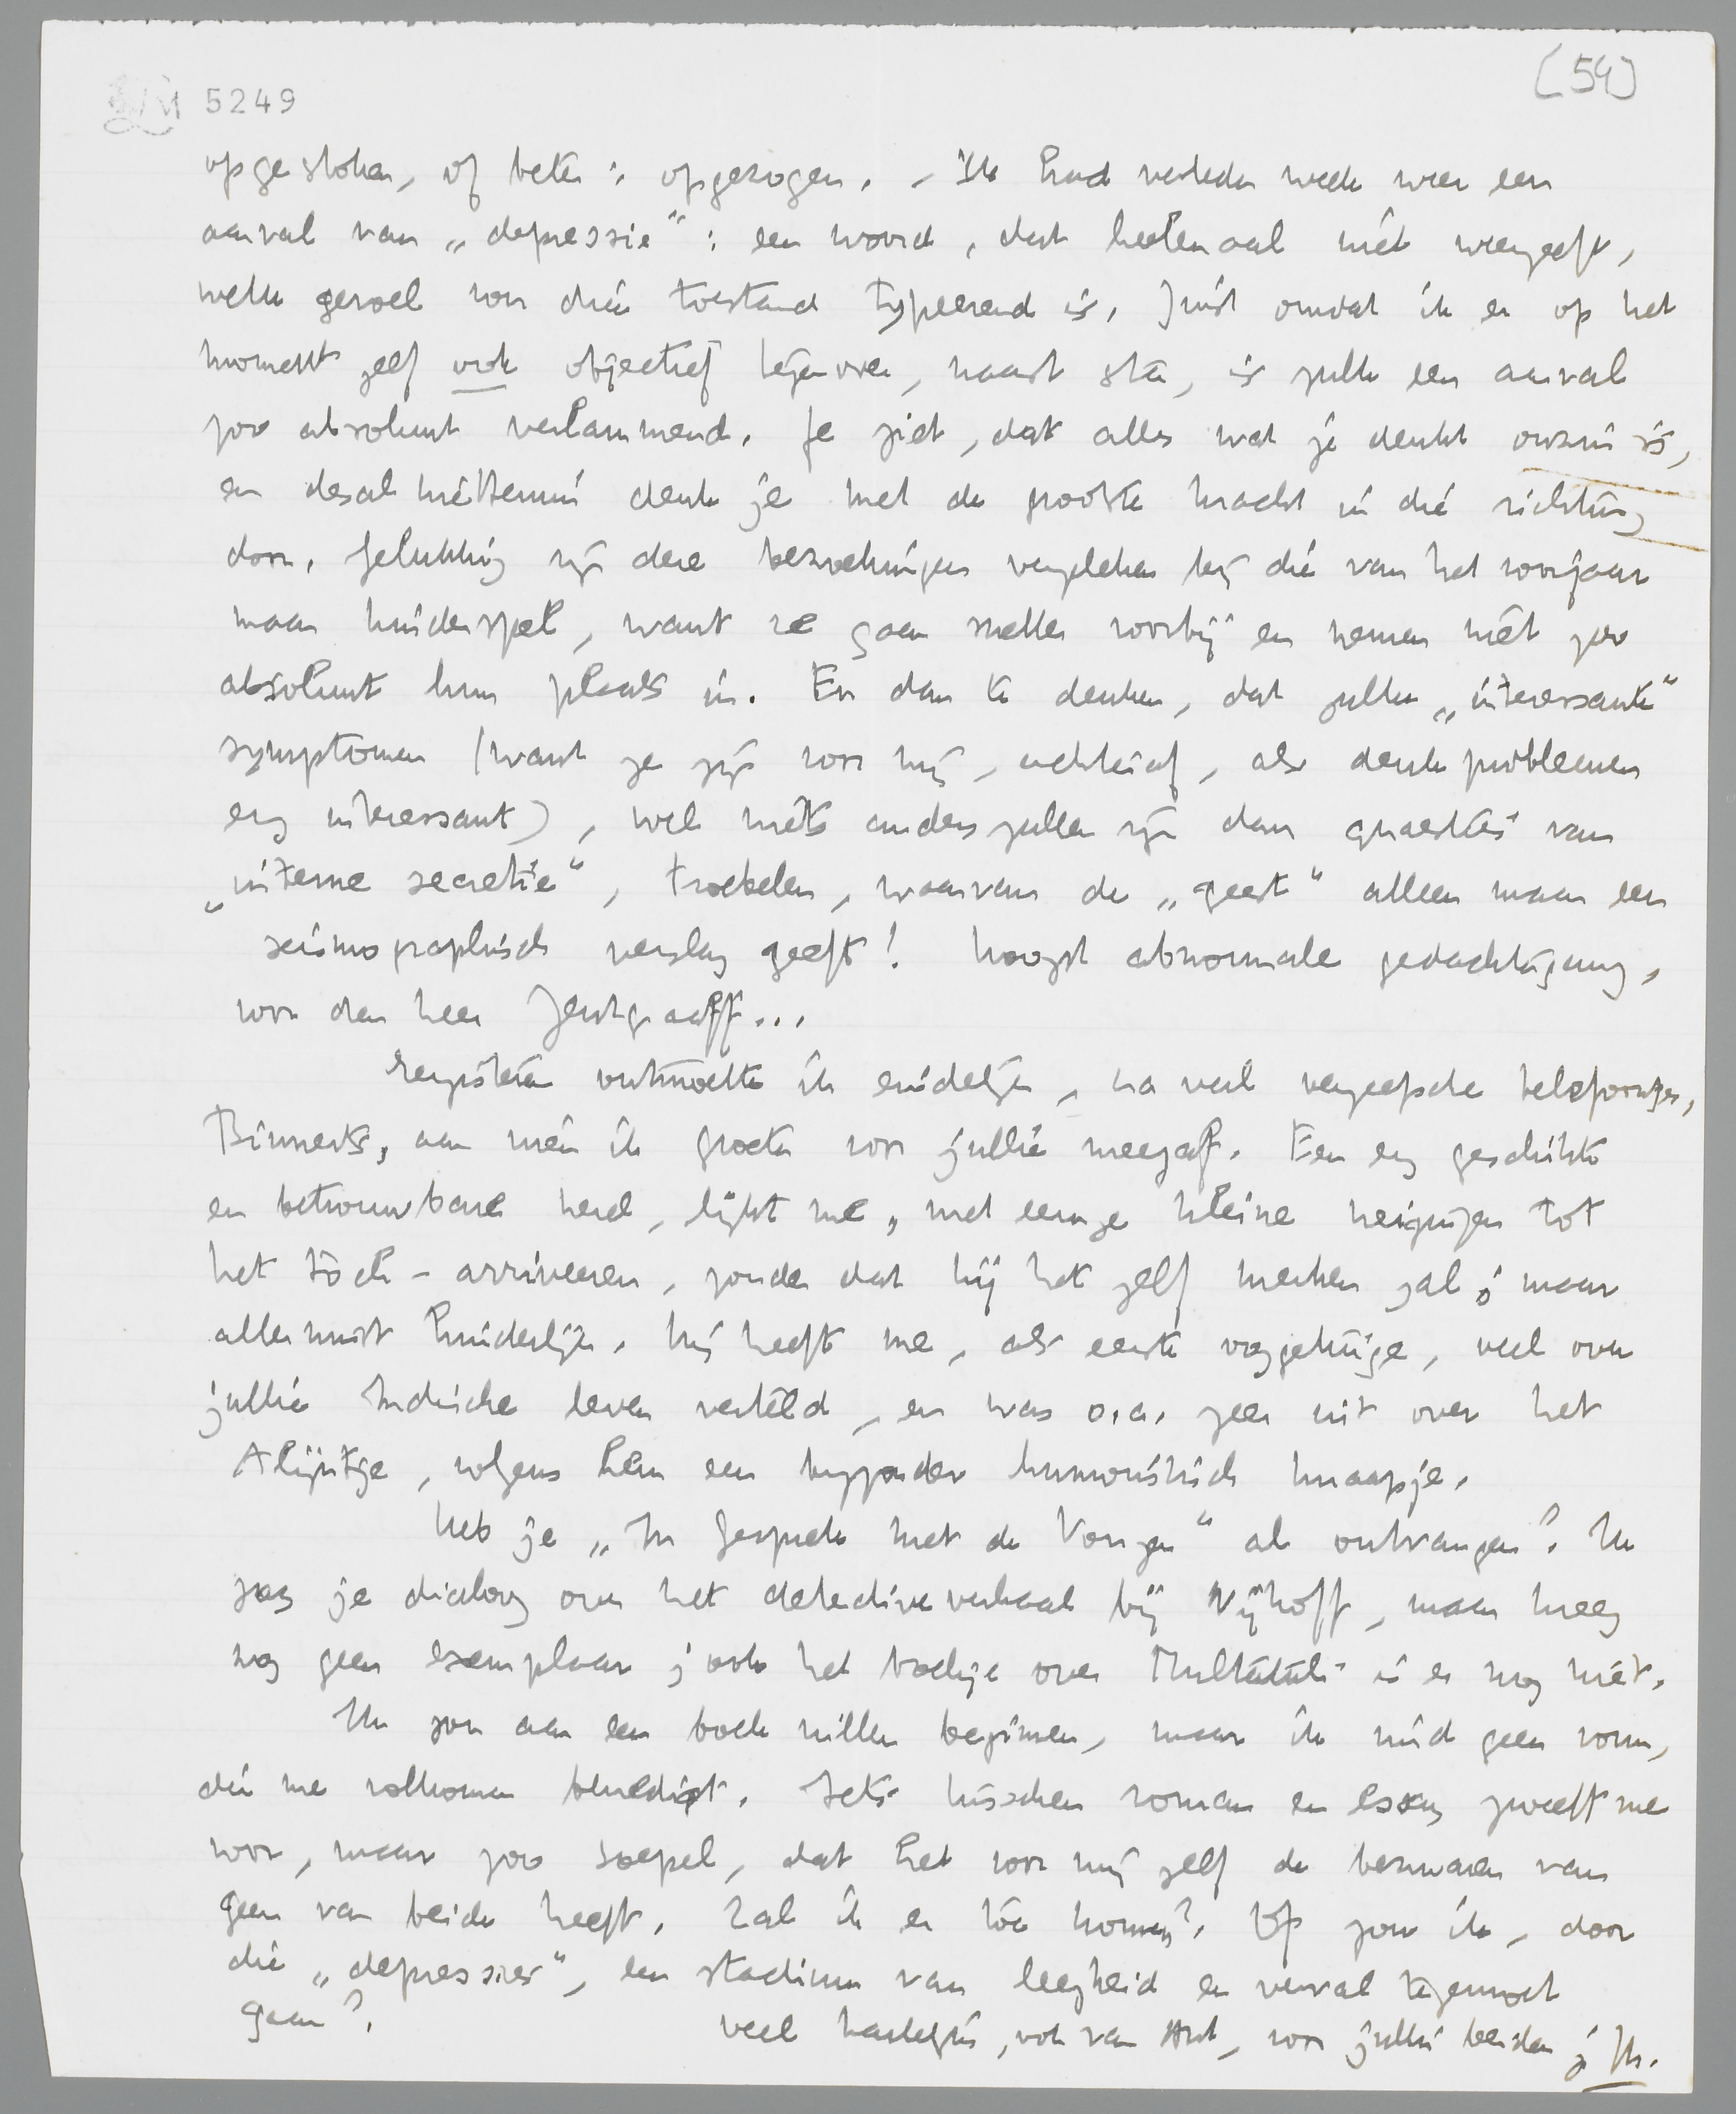 5249
(54)
opgestoken, of beter: opgezogen. - Ik had verleden week weer een
aanval van „depressie": een woord, dat heelemaal niet weergeeft,
welk gevoel voor dien toestand typeerend is. Juist omdat ik er op het
moment zelf ook objectief tegenover, naast sta, is zulk een aanval
zoo absoluut verlammend. Je ziet, dat alles wat je denkt onzin is,
en desalniettemin denk je met de grootste kracht in die richting
door. Gelukkig zijn deze bezoekingen vergeleken bij die van het voorjaar
maar kinderspel, want ze gaan sneller voorbij en nemen niet zoo
absoluut hun plaats in. En dan te denken, dat zulke „interessante"
symptomen (want ze zijn voor mij, achteraf, als denkproblemen
erg interessant), wel niets anders zullen zijn dan quaesties van
„interne secretie", troebelen, waarvan de „geest" alleen maar een
seismographisch verslag geeft! Hoogst abnormale gedachtegang,
voor den heer Zentgraaff...
Eergisteren ontmoette ik eindelijk, na veel vergeefsche telefoontjes,
Binnerts, aan wien ik groeten voor jullie meegaf. Een erg geschikte
en betrouwbare kerel, lijkt me, met eenige kleine neigingen tot
het tòch-arriveeren, zonder dat hij het zelf merken zal; maar
allerminst hinderlijk. Hij heeft me, als eerste ooggetuige, veel over
jullie Indische leven verteld, en was o.a. zeer uit over het
Alijntje, volgens hem een bijzonder humoristisch knaapje.
Heb je „In Gesprek met de Vorigen" al ontvangen? Ik
zag je dialoog over het detectiveverhaal bij Nijhoff, maar kreeg
nog geen exemplaar; ook het boekje over Multatuli is er nog niet.
Ik zou aan een boek willen beginnen, maar ik vind geen vorm,
die me volkomen bevredigt. Iets tusschen roman en essay zweeft me
voor, maar zoo soepel, dat het voor mij zelf de bezwaren van
geen van beide heeft. Zal ik er toe komen? Of zou ik, door
die „depressies", een stadium van leegheid en verval tegemoet
gaan?
veel hartelijks, ook van Ant, voor jullie beiden je M.